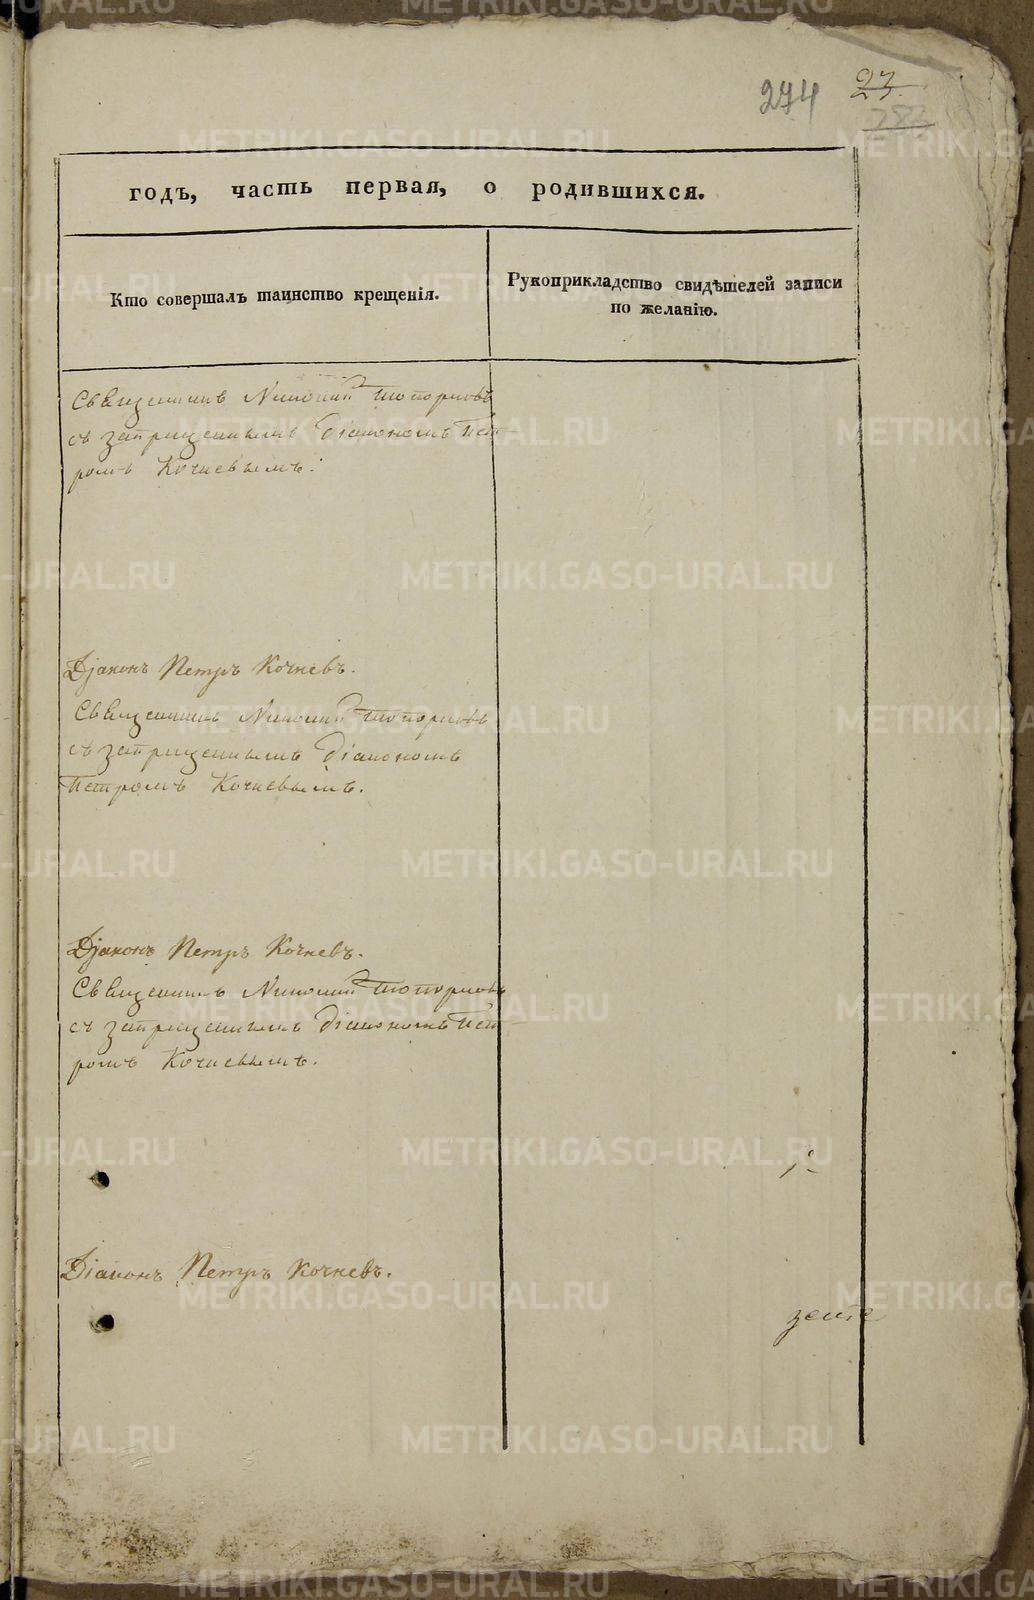 274 23.
283
годъ, часть первая, о родившихся.
Кто совершалъ таинство крещенія.
Рукоприкладство свидѣтелей записи
по желанію.
Священникъ Николай Топорковъ
съ запрещеннымъ Діакономъ Пет-
ромъ Кочневымъ.
Діяконъ Петръ Кочневъ.
Священникъ Николай Топорковъ
съ запрещеннымъ Діакономъ
Петромъ Кочневымъ.
Діяконъ Петръ Кочневъ.
Священникъ Николай Топорковъ
съ запрещеннымъ Діакономъ Пет-
ромъ Кочневымъ.
Діаконъ Петръ Кочневъ.
METRIKI.GASO-URAL.RU